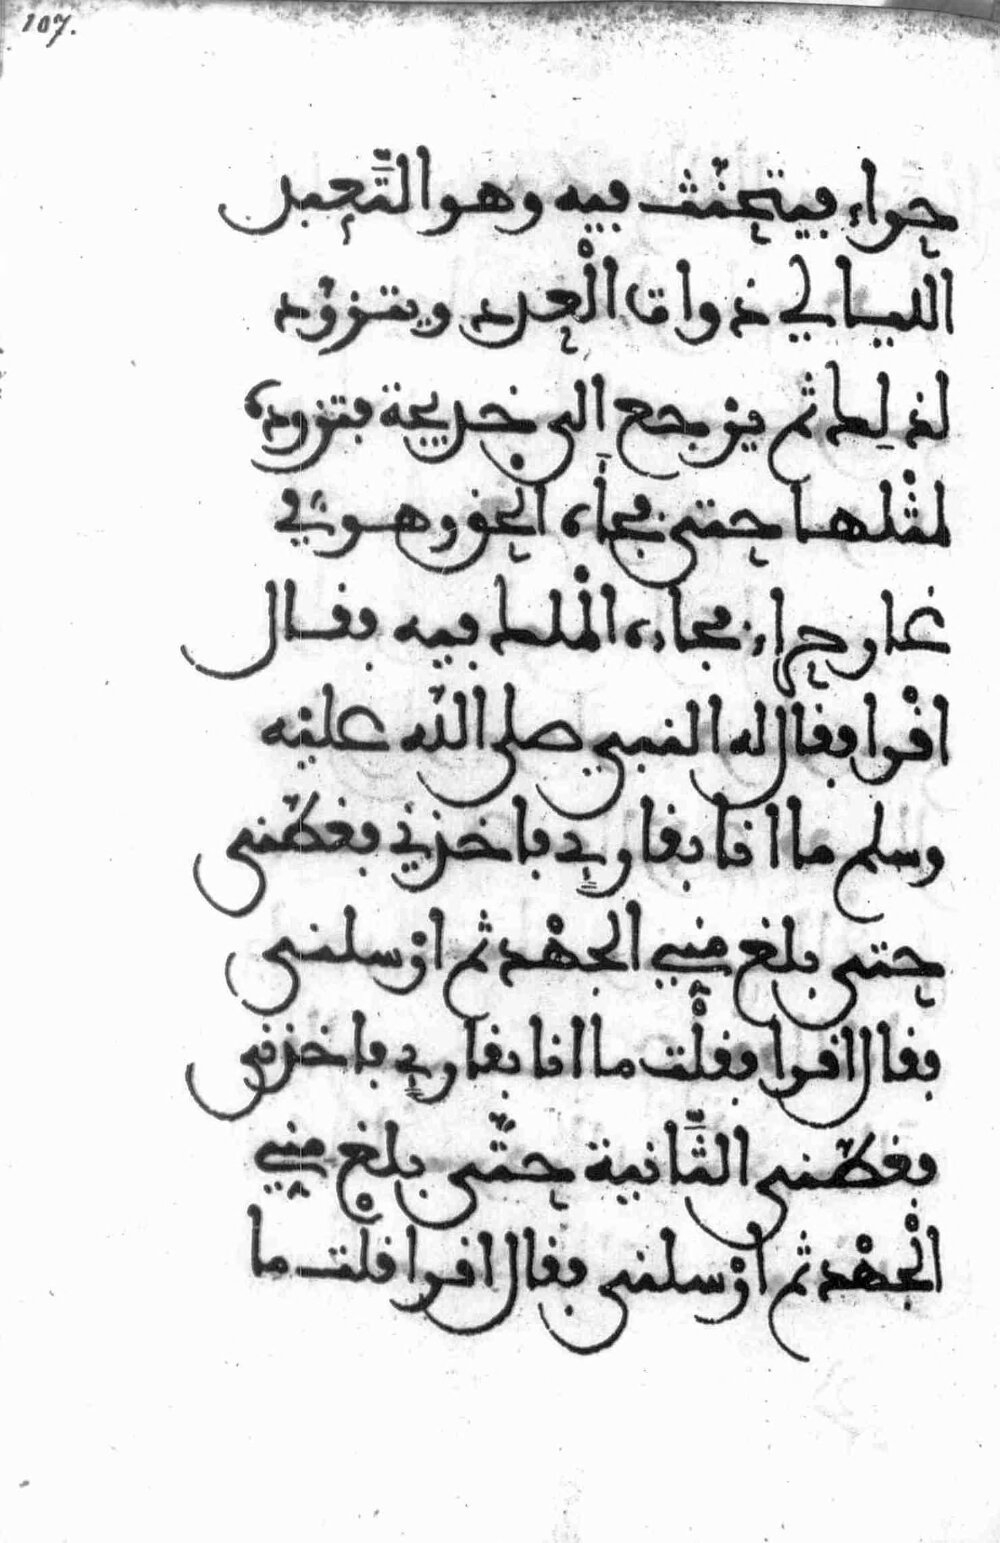 107.
حراء فيتحنث فيه وهو التَّعبد
الليالي ذوات الْعدد ويتزوّد
لذلك ثم يرْجع إلى خديجة فتزوده
لمثْلها حتى فجأه الحق وهو في
غار حراء فجاءه الْملك فيه فقال
اقْرا فقال له النبي صلى اللّه عليْه
وسلم ما انا بقاري فاخذني فغطّني
حتى بلغ مني الجهْد ثم ارْسلني
فقال اقرا فقلْت ما انا بقاري فاخذني
فغطّني الثَّانية حتّى بلغ مني
الْجهْد ثم ارْسلني فقال اقرا قلْت ما